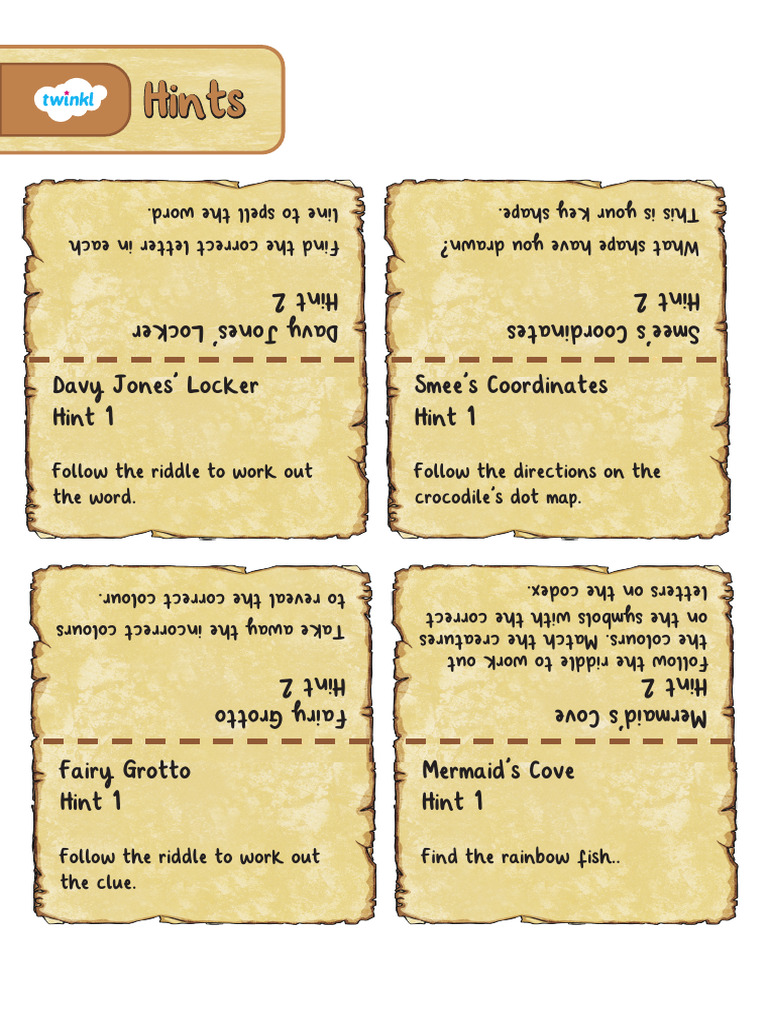 twinkl
Hints
Davy Jones' Locker
Hint 2
Find the correct letter in each
line to spell the word.
Davy Jones' Locker
Hint 1
Follow the riddle to work out
the word.
Smee's Coordinates
Hint 2
What shape have you drawn?
This is your key shape.
Smee's Coordinates
Hint 1
Follow the directions on the
crocodile's dot map.
Fairy Grotto
Hint 2
Take away the incorrect colours
to reveal the correct colour.
Fairy Grotto
Hint 1
Follow the riddle to work out
the clue.
Mermaid's Cove
Hint 2
Follow the riddle to work out
the colours. Match the creatures
on the symbols with the correct
letters on the codex.
Mermaid's Cove
Hint 1
Find the rainbow fish..